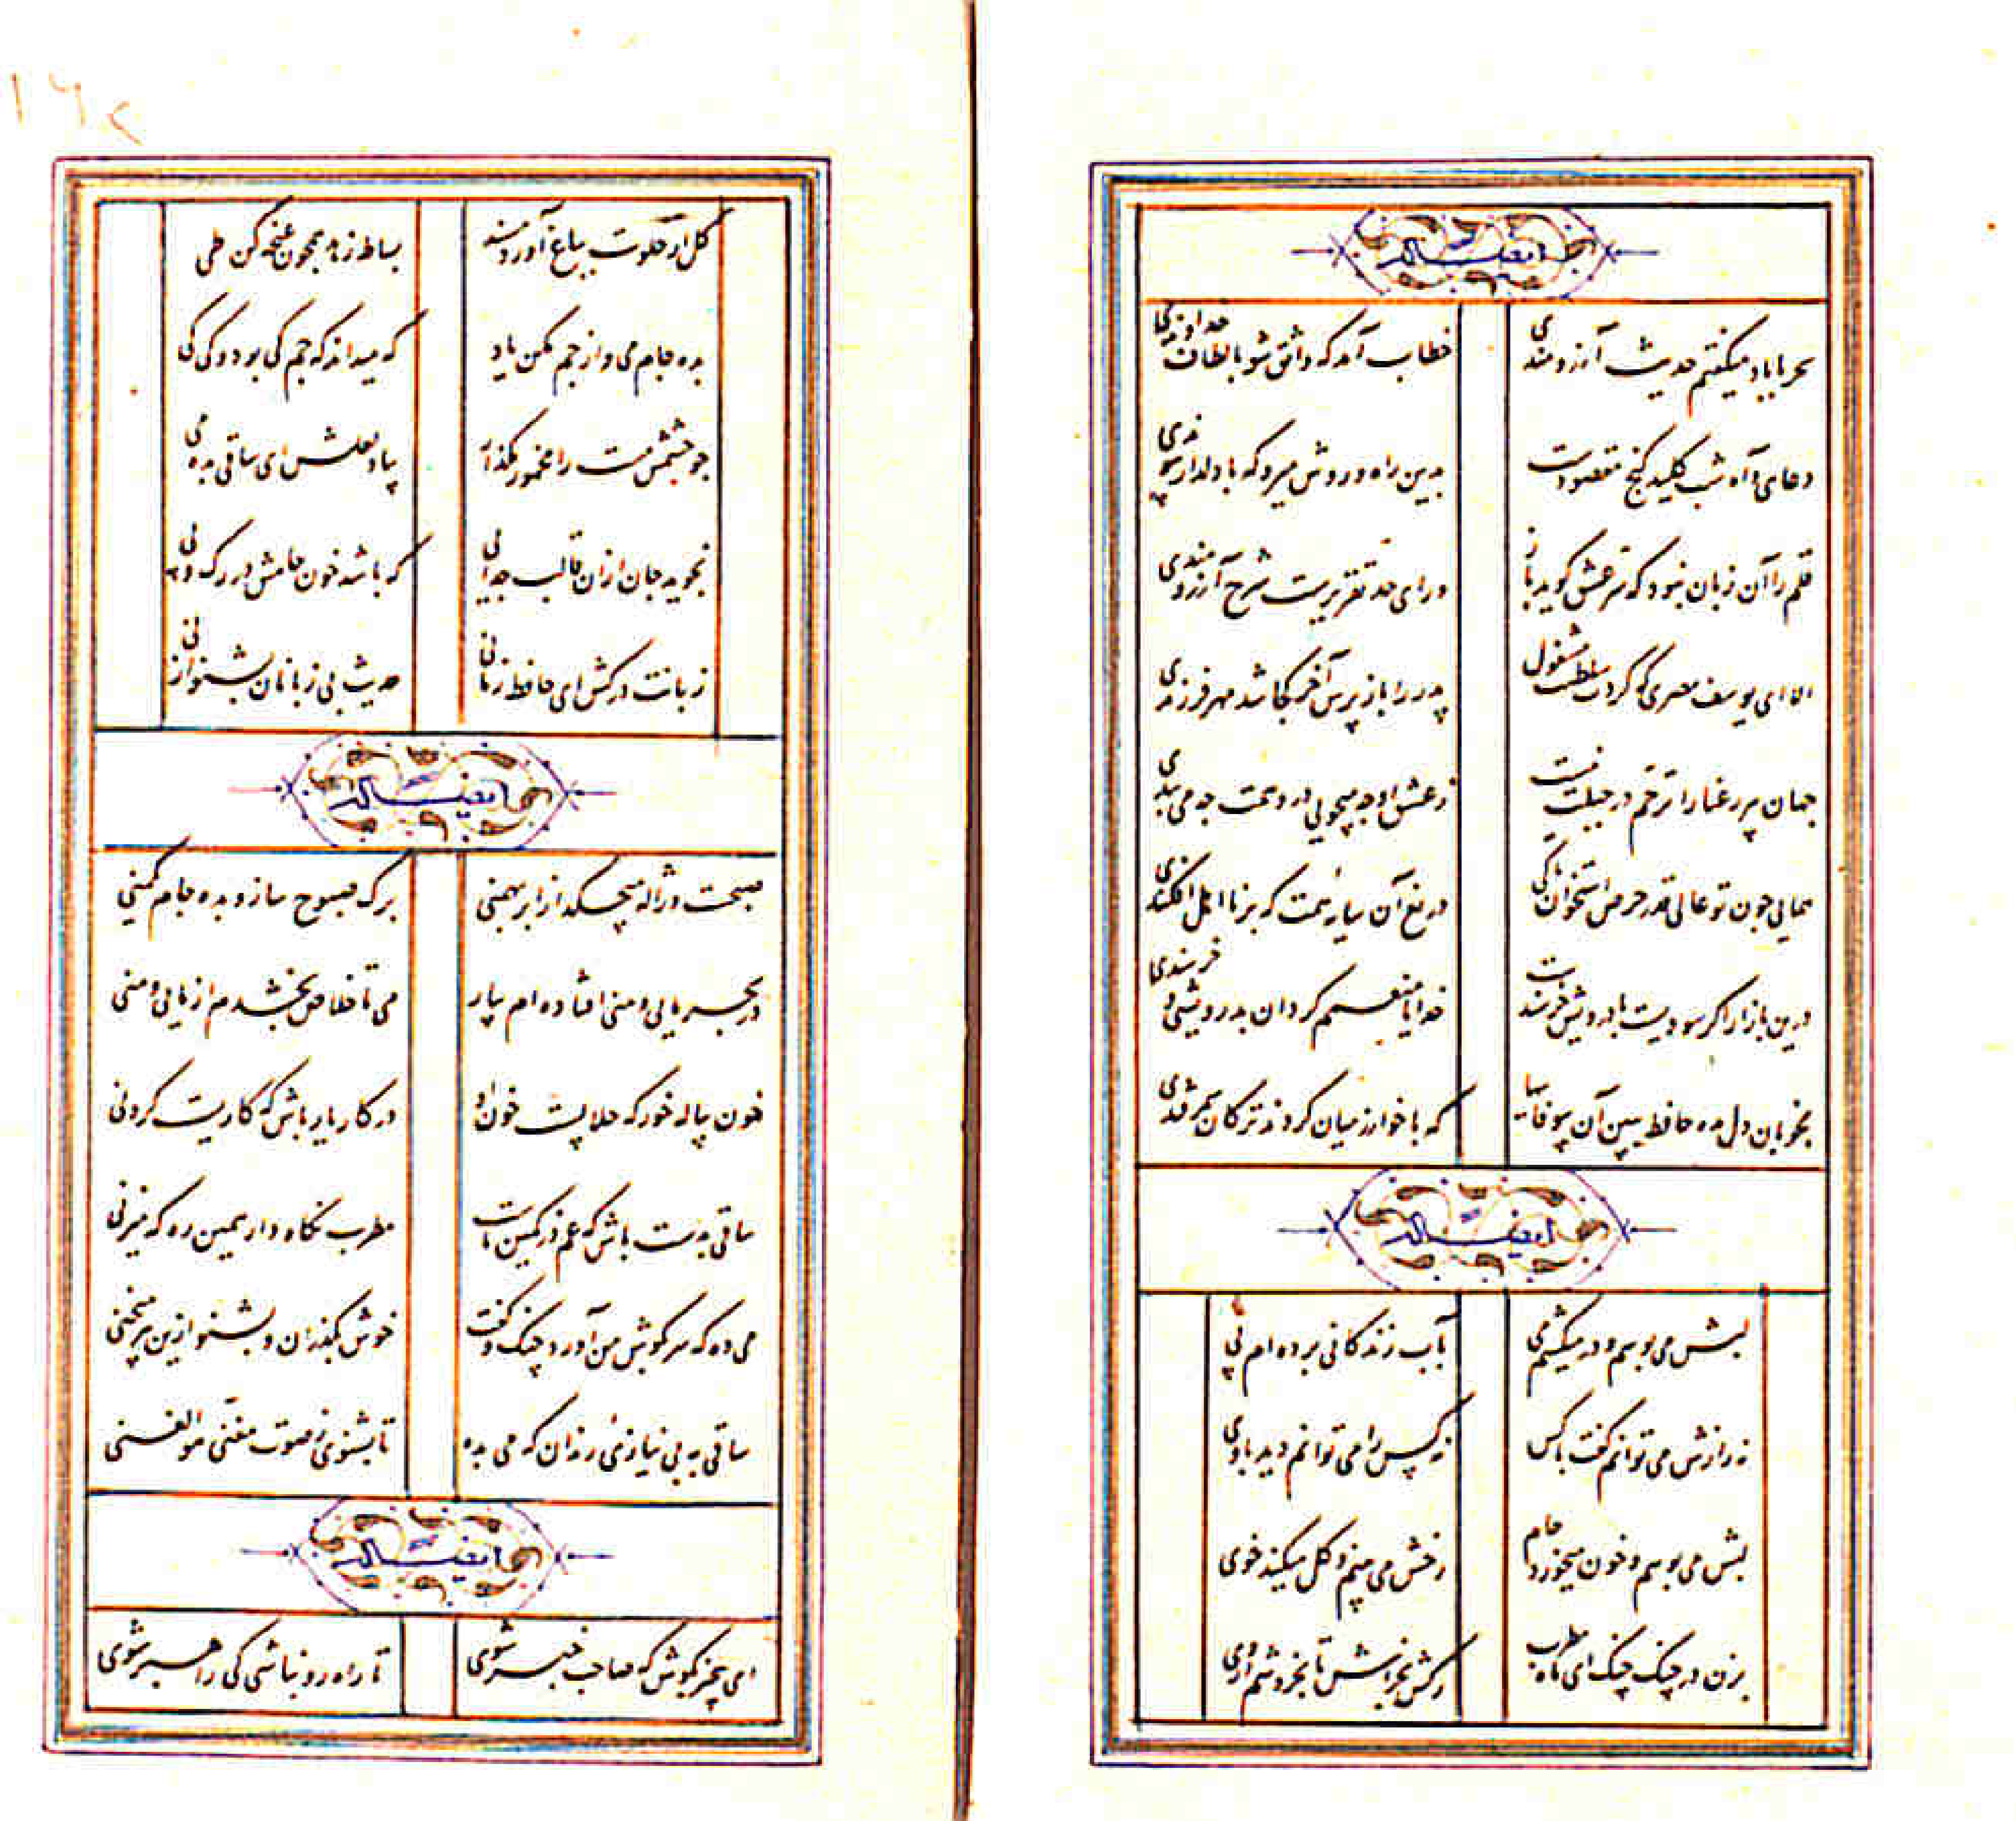 ایضاً له
سحر با باد میگفتم حدیث آرزومندی خطاب آمد که واثق شو بالطاف خداوندی
دعای و آه شب کلید گنج مقصودست بدین راه و روش میرو که با دلدار پیوندی
قلم را آن زبان نبود که سر عشق گوید باز ورای حد تقریرست شرح آرزومندی
الا ای یوسف مصری که کردت سلطنت مشغول پدر را باز پرس آخر کجا شد مهر فرزندی
جهان پیر رعنا را ترحم در جبلت نیست ز عشق او چه میجویی درو همت چه می بندی
همایی چون تو عالی قدر حرص استخوان تا کی دریغ آن سایه همت که بر نا اهل افکندی
درین بازار اگر سودیست با درویش خرسندست خدایا منعمم گردان بدرویشی و خرسندی
بخوبان دل مده حافظ ببین آن بیوفاییها که با خوارزمیان کردند ترکان سمرقندی
ایضاً له
لبش می بوسم و در میکشم می بآب زندگانی برده ام پی
نه رازش می توانم گفت با کس نه کس را می توانم دید با وی
لبش می بوسم و خون میخورد جام رخش می بینم و گل میکند خوی
بزن در چنگ چنگ ای ماه مطرب رگش بخراش تا بخروشم از وی
۱۶۲
گل از خلوت بباغ آورد مسند بساط زهد همچون غنچه کن طی
بده جام می و از جم مکن یاد که میداند که جم کی بود و کی کی
چو چشمش مست را مخمور مگذار بیاد لعلش ای ساقی بده می
نجوید جان ازان قالب جدایی که باشد خون جامش در رگ و پی
زبانت درکش ای حافظ زمانی حدیث بی زبانان بشنو از نی
ایضاً له
صبحست و ژاله میچکد از ابر بهمنی برگ صبوح ساز و بده جام یک منی
در بحر مایی و منی افتاده ام بیار می تا خلاص بخشدم از مایی و منی
خون پیاله خور که حلالست خون او در کار یار باش که کاریست کردنی
ساقی بدست باش که غم در کمین ماست مطرب نگاه دار همین ره که میزنی
می ده که سر بگوش من آورد چنگ و گفت خوش بگذران و بشنو ازین پیر منحنی
ساقی به بی نیازی رندان که می بده تا بشنوی ز صوت مغنی هو الغنی
ایضاً له
ای بیخبر بکوش که صاحب خبر شوی تا راه رو نباشی کی راهبر شوی